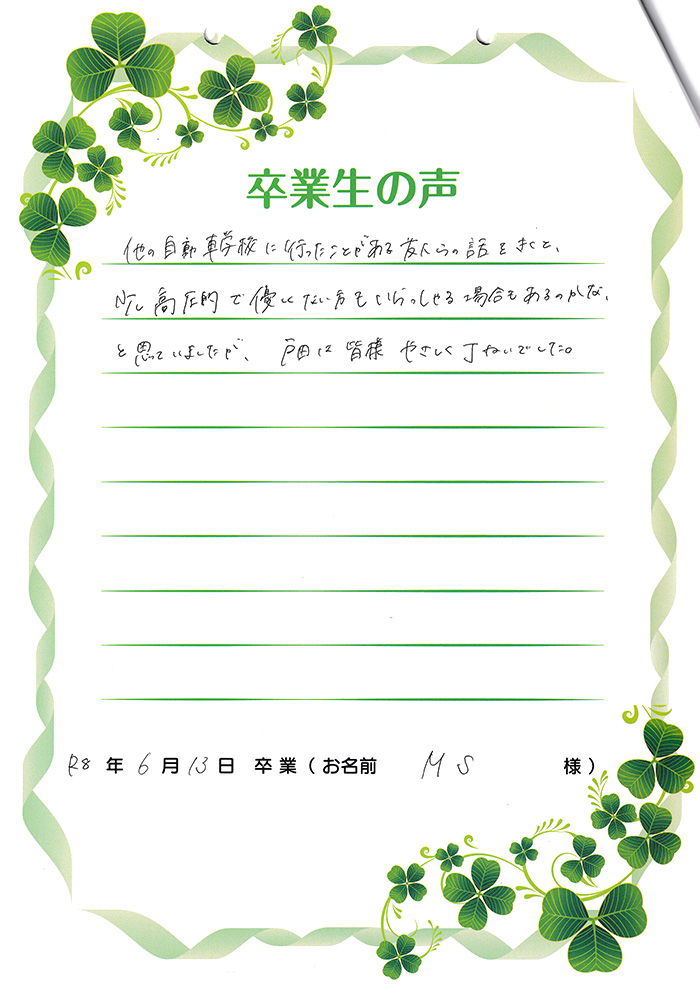 卒業生の声
他の自動車学校に行ったことがある友人らの話をきくと、
少し高圧的で優しくない方もいらっしゃる場合もあるのかな、
と思っていましたが、戸田は皆様やさしく丁ねいでした。
R8年6月13日 卒業(お名前 M S 様)